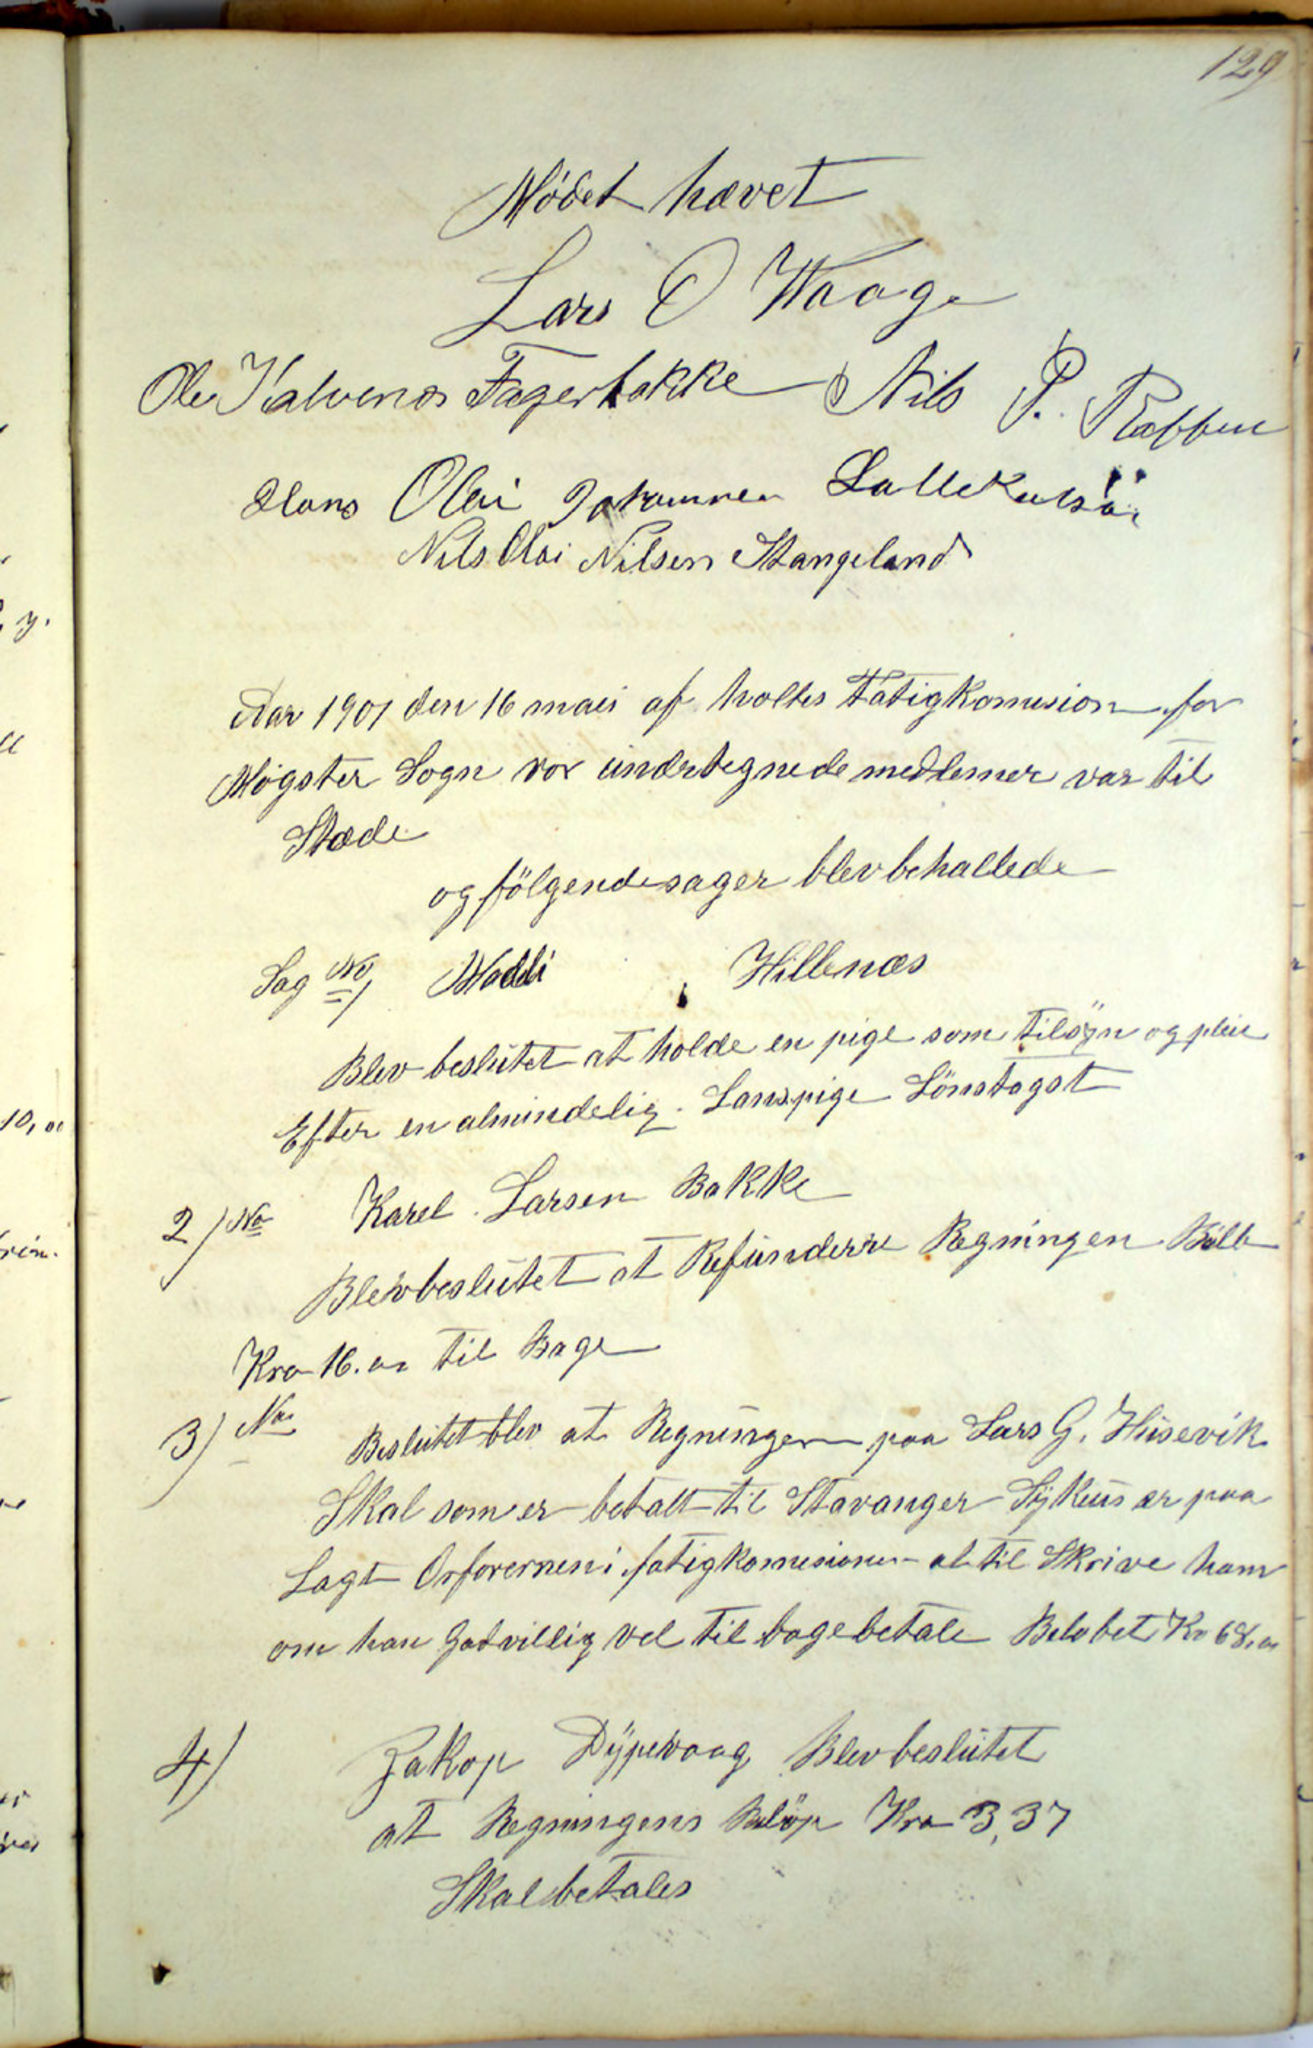 129
Mödet hævet
Lars O Waage
Ole Kalvenes Fagerbakke Nils P. Rabben
Hans Olai Johannesen
Nils Olai Nilsen Stangeland
Aar 1901 den 16 mai af holtes Fatigkomision for
Møgster Sogn vor undertegnede medlemer var til
Stæde
og fölgende sager blev behallede
Sag No 1 Maddi Hillenæs
Blev beslutet at holde en pige som tilsÿn og pleie
Efter en almindelig Lanspige Lönstagst
2) No Karel Larsen Bakke
Blev beslutet at Refunderre Regningen
Kro 16.00 til Bage
3) No Beslutet blev at Regningen paa Lars G. Husevik
Skal som er betalt til Stavanger Sÿkuus er paa
Lagt Orforernen i fatigkomisionen at til Skrive ham
om han Godvillig vel til bagebetale Belobet Kr 68,00
4) Jakop Dÿpevaag Blev beslutet
at Regningens Belöp Kro 3,37
Skal betales